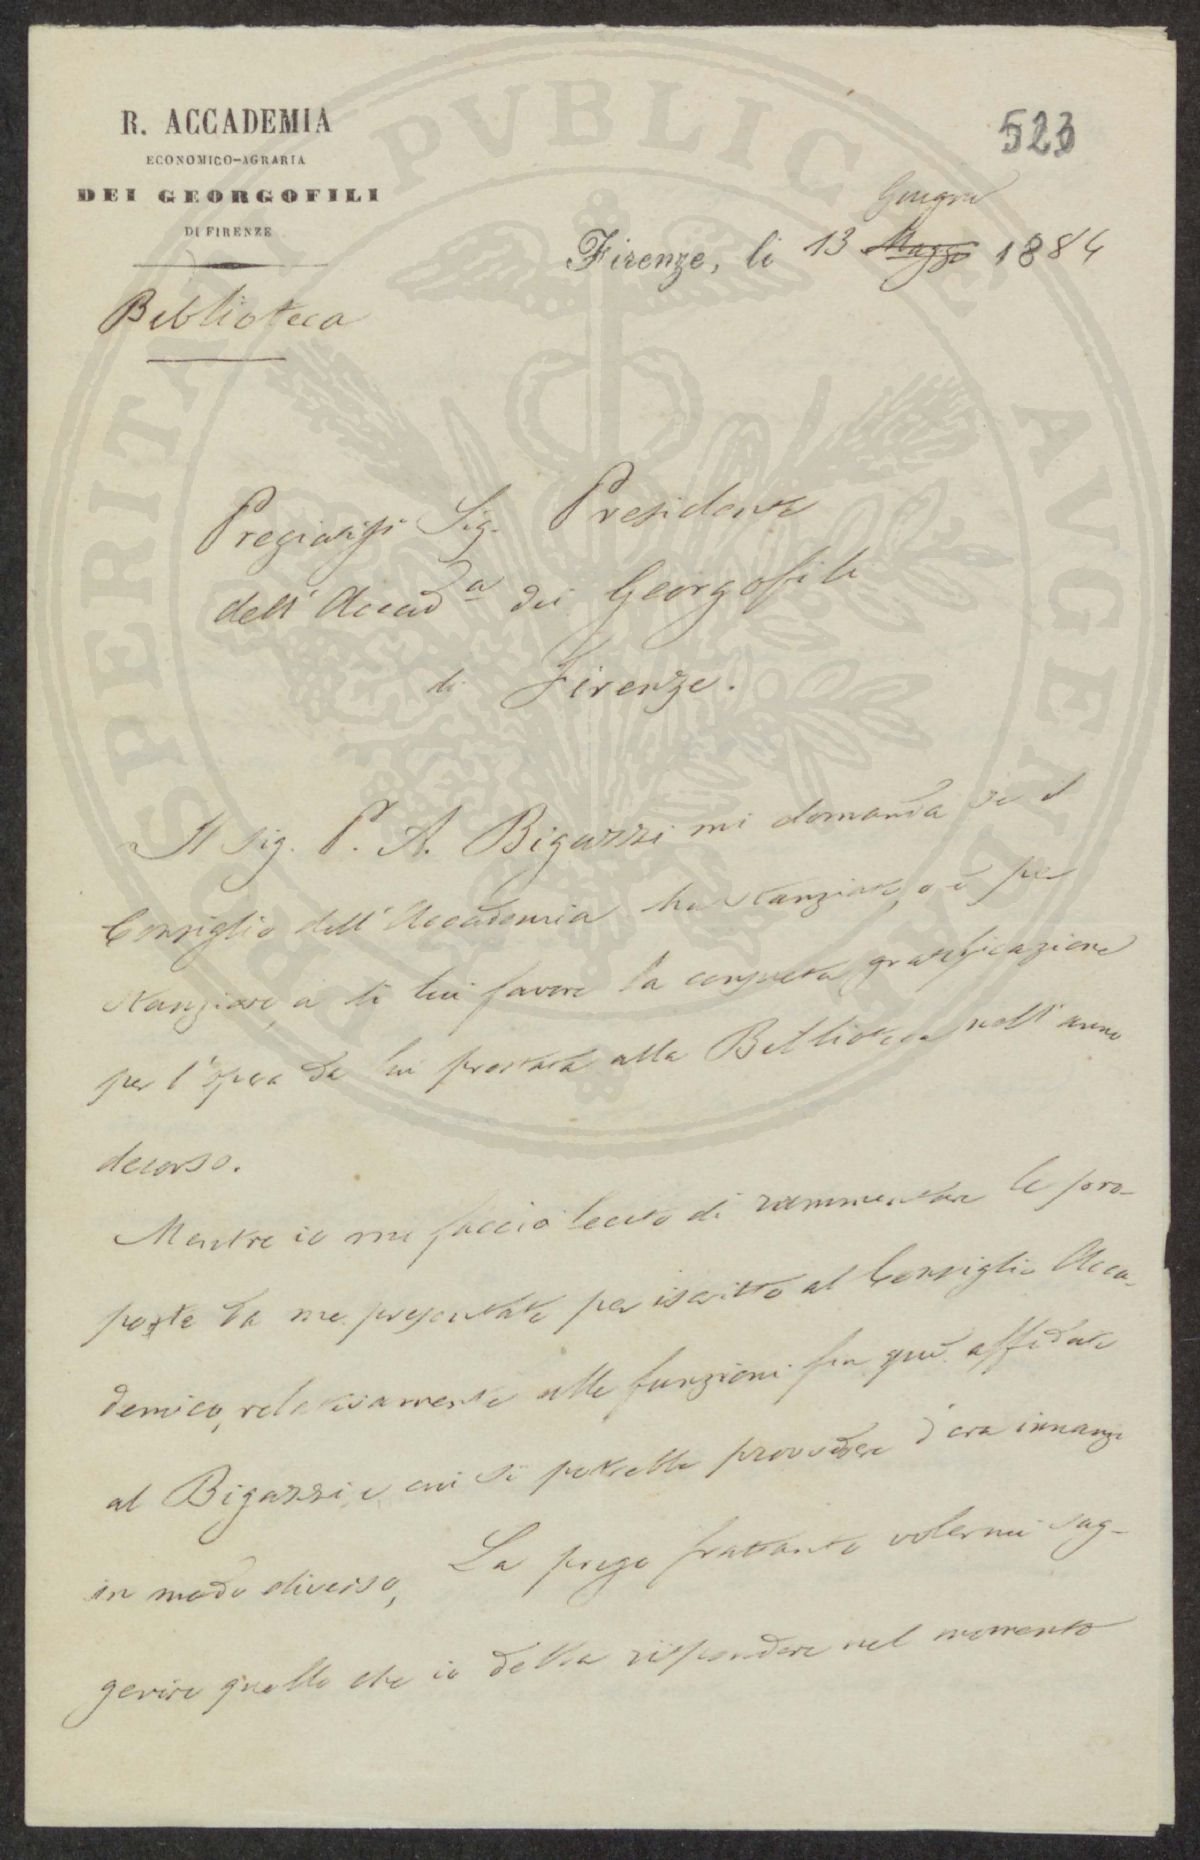 R. ACCADEMIA
ECONOMICO-AGRARIA
DEI GEORGOFILI
DI FIRENZE
523
Giugno
Firenze, li 13 Maggio 1884
Biblioteca
Pregiatiss Sig. Presidente
dell'Accad.a dei Georgofili
di Firenze.
Il Sig. P. A. Bigazzi mi domanda se il
Consiglio dell'Accademia ha stanziato, o è per
stanziare, a di lui favore la consueta gratificazione
per l'opera da lui prestata alla Biblioteca nell'anno
decorso.
Mentre io mi faccio lecito di rammentare le pro-
poste da me presentate per iscritto al Consiglio Acca-
demico, relativamente alle funzioni fin qui affidate
al Bigazzi, e cui si potrebbe provvedere d'ora innanzi
in modo diverso, La prego frattanto volermi sug-
gerire quello che io debba rispondere nel momento
PROSPERITATI PVBLICAE AVGENDAE